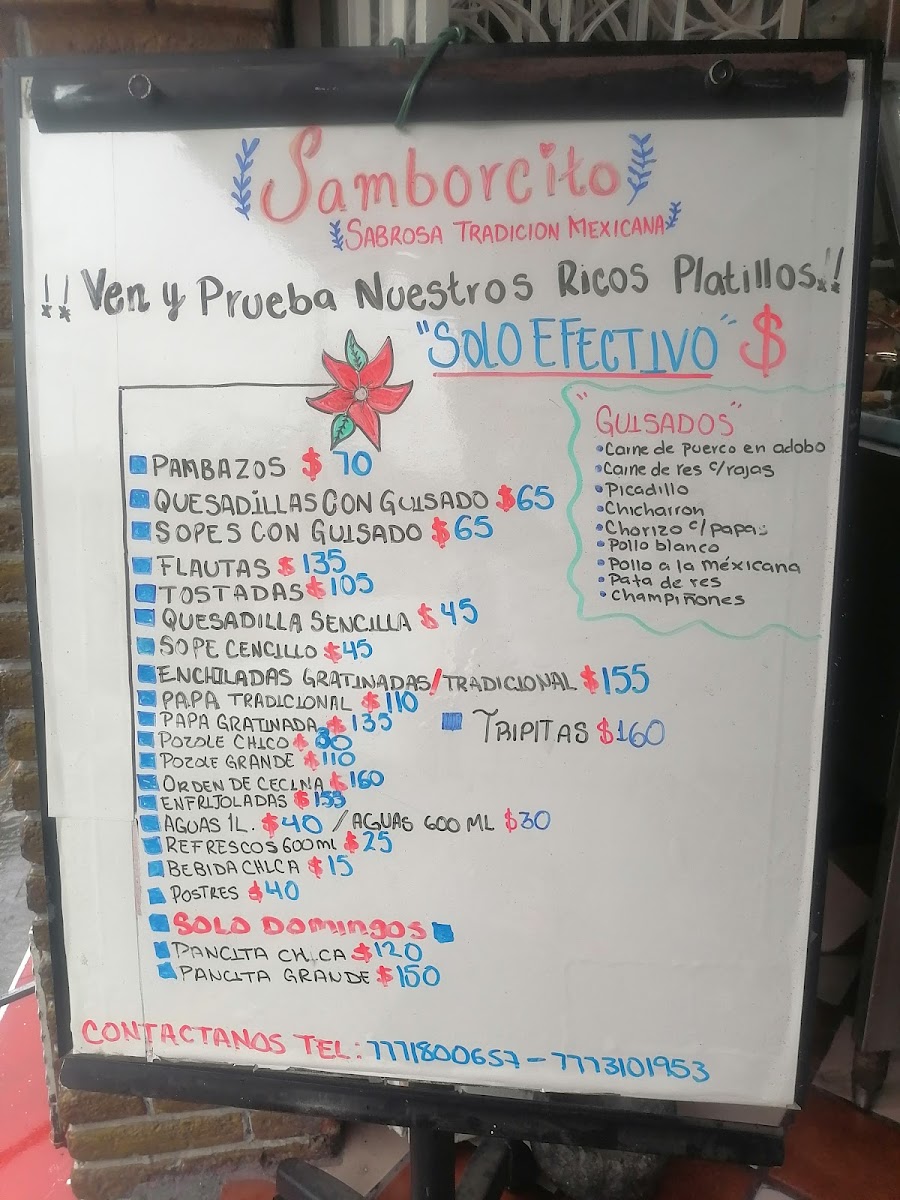 Samborcito
SABROSA TRADICION MEXICANA
!! Ven y Prueba Nuestros Ricos Platillos!!
"SOLO EFECTIVO" $
PAMBAZOS $ 70
QUESADILLAS CON GUISADO $65
SOPES CON GUISADO $65
FLAUTAS $ 135
TOSTADAS $105
QUESADILLA SENCILLA $45
SOPE CENCILLO $45
ENCHILADAS GRATINADAS/TRADICIONAL $155
PAPA TRADICIONAL $110
PAPA GRATINADA $135
POZOLE CHICO $
POZOLE GRANDE $110
ORDEN DE CECINA $160
ENFRIJOLADAS $155
AGUAS 1L. $40 / AGUAS 600 ML $30
REFRESCOS 600ml $25
BEBIDA CHICA $15
POSTRES $40
SOLO DOMINGOS
PANCITA CHICA $120
PANCITA GRANDE $150
"GUISADOS"
Carne de puerco en adobo
Carne de res c/rajas
Picadillo
Chicharron
Chorizo c/papas
Pollo blanco
Pollo a la méxicana
Pata de res
Champiñones
TRIPITAS $160
CONTACTANOS TEL: 7771800657 - 7773101953